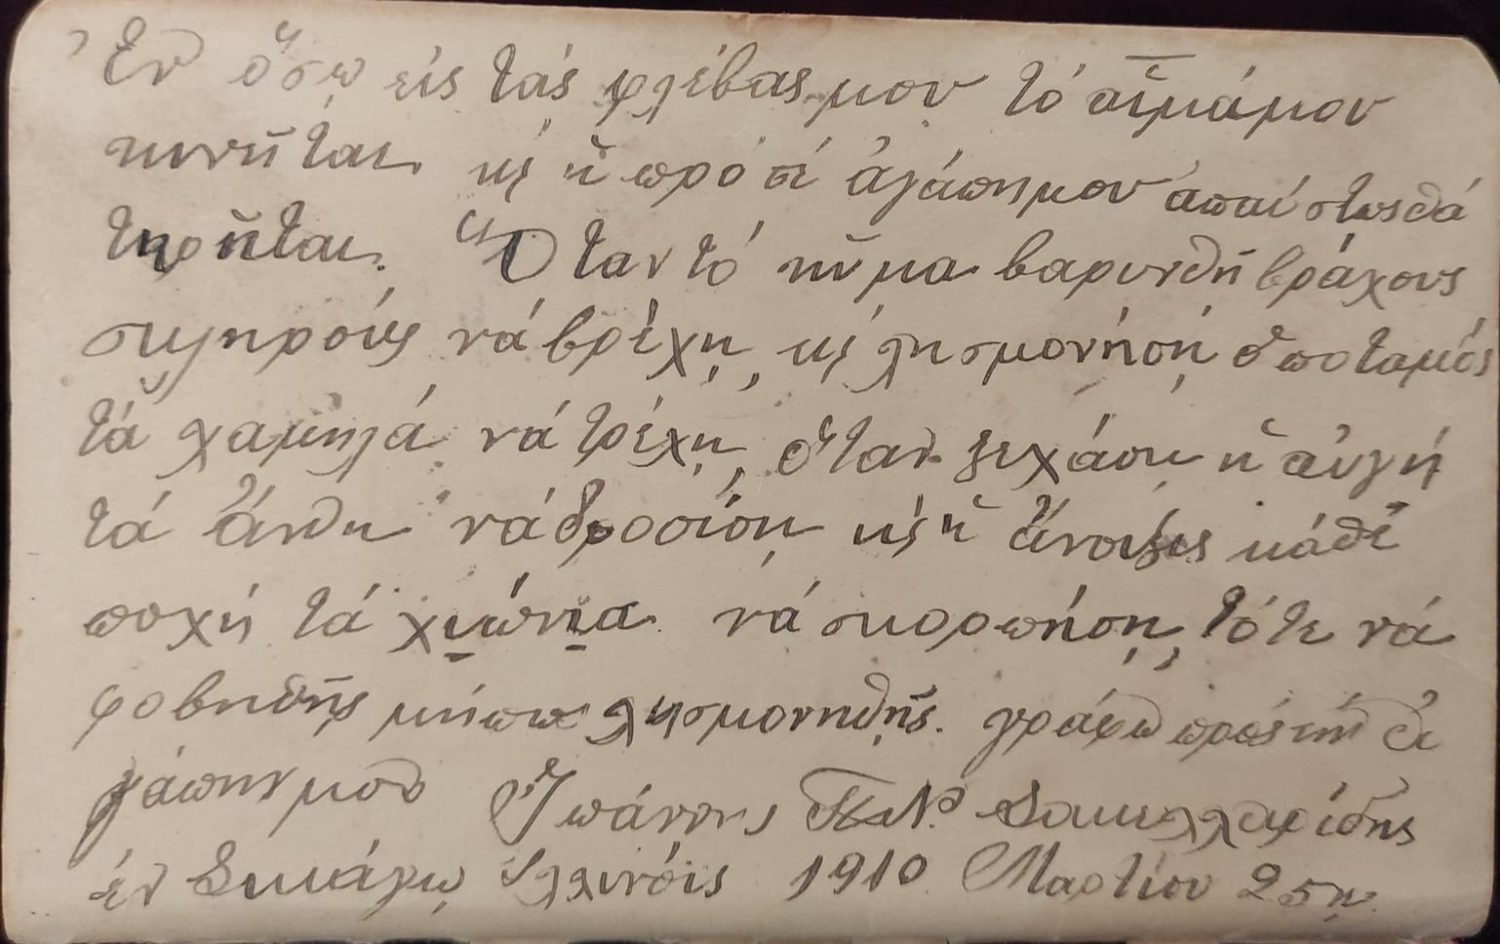 Ἐν ὅσῳ εἰς τάς φλέβας μου τό αἷμά μου
κινῆται κι ἡ πρό σέ ἀγάπη μου ἀπαί στως θά
τηρῆται. Ὅταν τό κῦμα βαρυνθῇ βράχους
σκληρούς νά βρέχῃ, κι λησμονήσῃ ὁ ποταμός
τά χαμηλά νά τρέχῃ, ὅταν ξεχάσῃ ἡ αὐγή
τά ἄνθη νά δροσίσῃ κι ἡ ἄνοιξις κάθε
ποχή τά χιώνια νά σκορπήσῃ, τότε νά
φοβηθῇς μήπως λησμονηθῇς. γράφω πρός τήν ἀ
γάπην μου Ἰωάννης Σακελλαρίδης
ἐν Σικάγῳ Ἰλλινόις 1910 Μαρτίου 25ῃ.